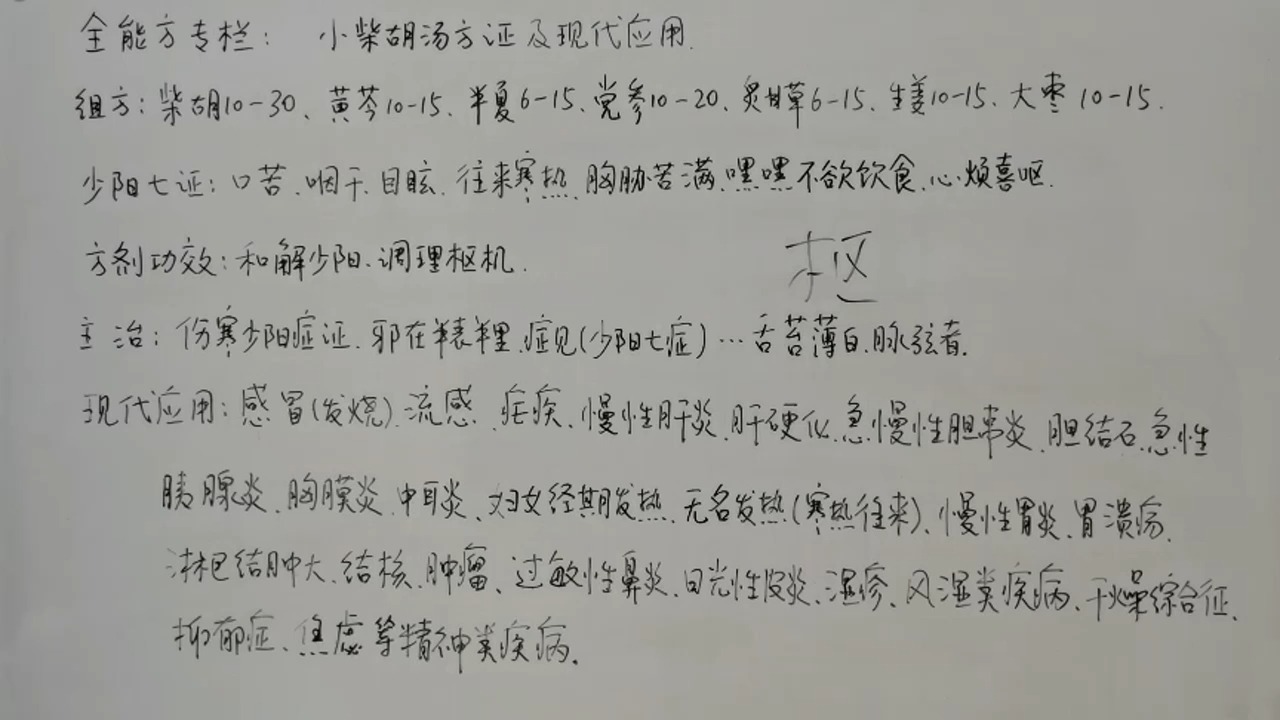 全能方专栏： 小柴胡汤方证及现代应用.
组方：柴胡10-30、黄芩10-15、半夏6-15、党参10-20、炙甘草6-15、生姜10-15、大枣10-15.
少阳七证：口苦、咽干、目眩、往来寒热、胸胁苦满、嘿嘿不欲饮食、心烦喜呕.
方剂功效：和解少阳、调理枢机.
枢
主治：伤寒少阳症证、邪在半表半里、症见(少阳七症)…舌苔薄白、脉弦者.
现代应用：感冒(发烧)、流感、疟疾、慢性肝炎、肝硬化、急慢性胆囊炎、胆结石、急性
胰腺炎、胸膜炎、中耳炎、妇女经期发热、无名发热(寒热往来)、慢性胃炎、胃溃疡、
淋巴结肿大、结核、肿瘤、过敏性鼻炎、日光性皮炎、湿疹、风湿类疾病、干燥综合征、
抑郁症、焦虑等精神类疾病.